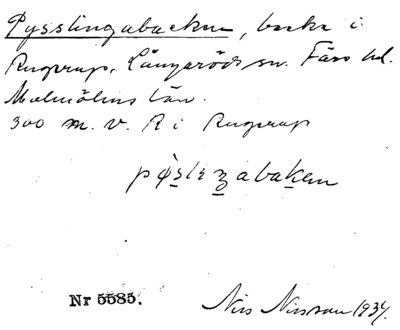 Pysslingabacken, backe i
Rugerup, Långaröds sn. Färs hd.
Malmöhus län.
300 m. v. R i Rugerup
pø̀slɪŋabakɛn
Nr 5585.
Nils Nilsson 1934.